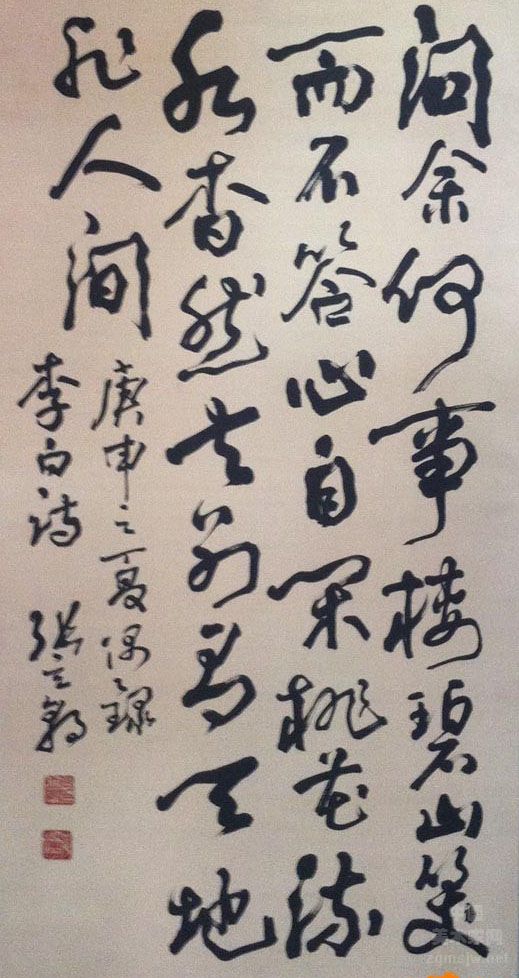 問余何事棲碧山笑
而不答心自閑桃花流
水杳然去別有天地
非人間
庚申之夏偶錄
李白詩 張立
zgmsjw.net